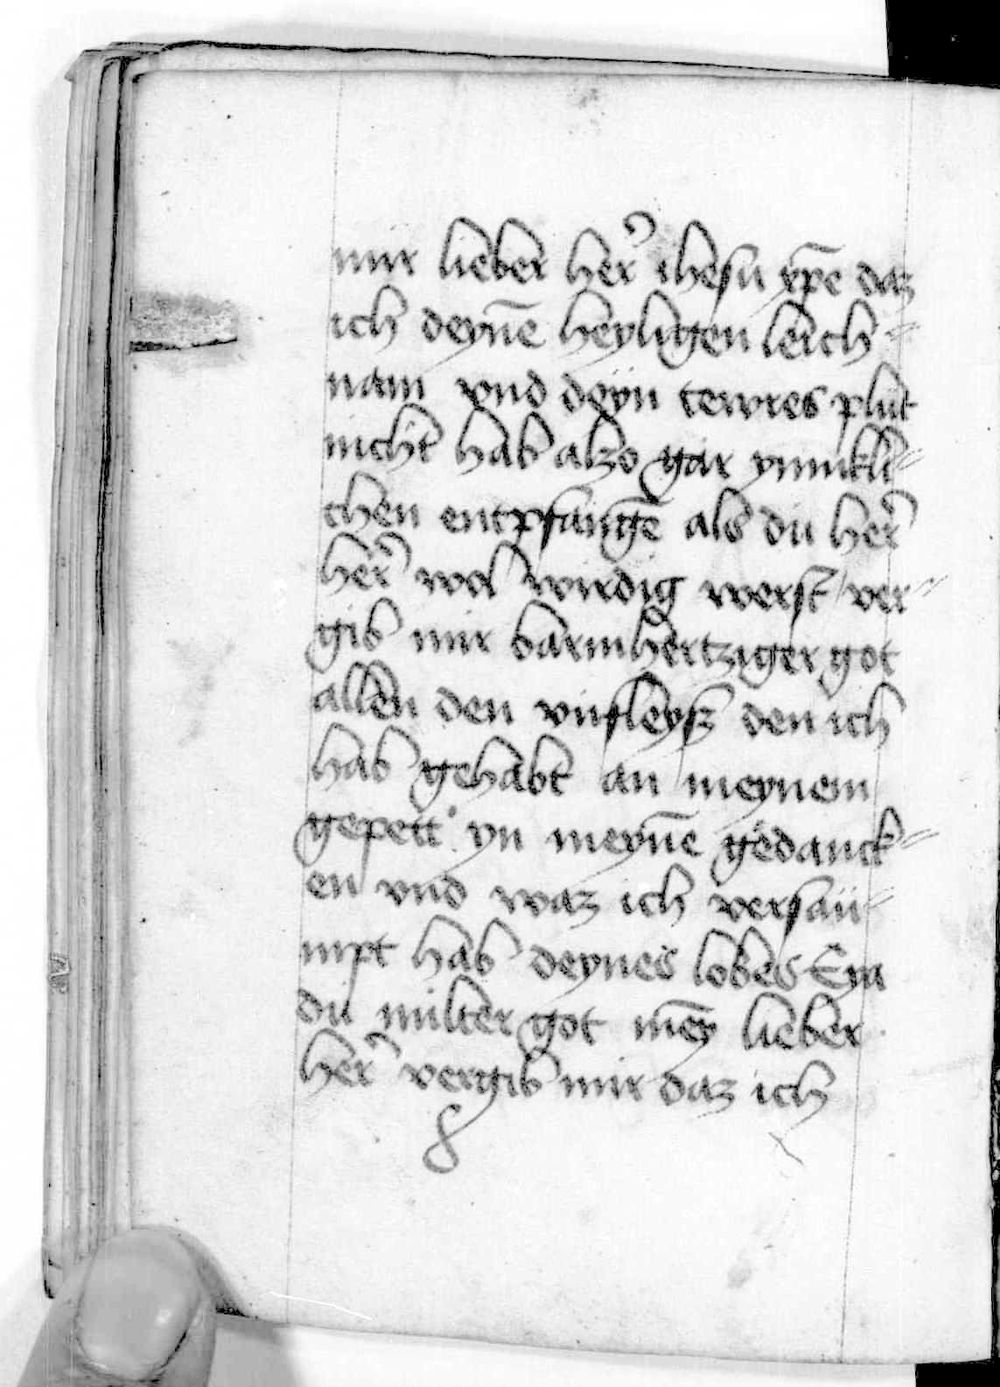 mir lieber her̃ ihesu xp̄e daz
ich deyn̄e heyligen leich=
nam vnd deyn tewres plut
nicht hab alzo gar ynnikli=
chen entpfanḡe als du her̃
her̃ wol wirdig werst / ver=
gib mir barmhertziger got
allen den vnfleysz den ich
hab gehabt an meynem
gepett yn meyn̄e gedanck=
en vnd waz ich versaü=
mpt hab deynes lobes Eya
du milter got mēy lieber
her̃ vergib mir daz ich